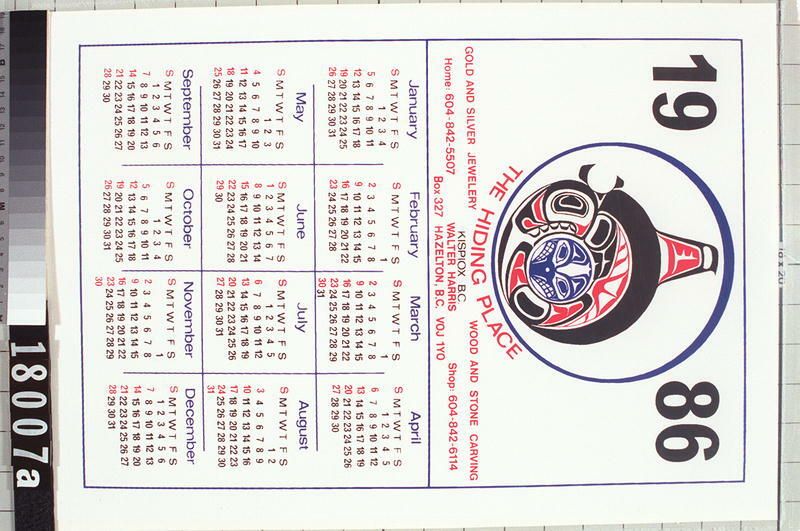 19 86
THE HIDING PLACE
KISPIOX, B.C.
GOLD AND SILVER JEWELERY WALTER HARRIS WOOD AND STONE CARVING
Home: 604-842-5507 Box 327 HAZELTON, B.C. V0J 1Y0 Shop: 604-842-6114
January
S M T W T F S
1 2 3 4
5 6 7 8 9 10 11
12 13 14 15 16 17 18
19 20 21 22 23 24 25
26 27 28 29 30 31
February
S M T W T F S
1
2 3 4 5 6 7 8
9 10 11 12 13 14 15
16 17 18 19 20 21 22
23 24 25 26 27 28
March
S M T W T F S
1
2 3 4 5 6 7 8
9 10 11 12 13 14 15
16 17 18 19 20 21 22
23 24 25 26 27 28 29
30 31
April
S M T W T F S
1 2 3 4 5
6 7 8 9 10 11 12
13 14 15 16 17 18 19
20 21 22 23 24 25 26
27 28 29 30
May
S M T W T F S
1 2 3
4 5 6 7 8 9 10
11 12 13 14 15 16 17
18 19 20 21 22 23 24
25 26 27 28 29 30 31
June
S M T W T F S
1 2 3 4 5 6 7
8 9 10 11 12 13 14
15 16 17 18 19 20 21
22 23 24 25 26 27 28
29 30
July
S M T W T F S
1 2 3 4 5
6 7 8 9 10 11 12
13 14 15 16 17 18 19
20 21 22 23 24 25 26
27 28 29 30 31
August
S M T W T F S
1 2
3 4 5 6 7 8 9
10 11 12 13 14 15 16
17 18 19 20 21 22 23
24 25 26 27 28 29 30
31
September
S M T W T F S
1 2 3 4 5 6
7 8 9 10 11 12 13
14 15 16 17 18 19 20
21 22 23 24 25 26 27
28 29 30
October
S M T W T F S
1 2 3 4
5 6 7 8 9 10 11
12 13 14 15 16 17 18
19 20 21 22 23 24 25
26 27 28 29 30 31
November
S M T W T F S
1
2 3 4 5 6 7 8
9 10 11 12 13 14 15
16 17 18 19 20 21 22
23 24 25 26 27 28 29
30
December
S M T W T F S
1 2 3 4 5 6
7 8 9 10 11 12 13
14 15 16 17 18 19 20
21 22 23 24 25 26 27
28 29 30 31
18007a
18 x 20